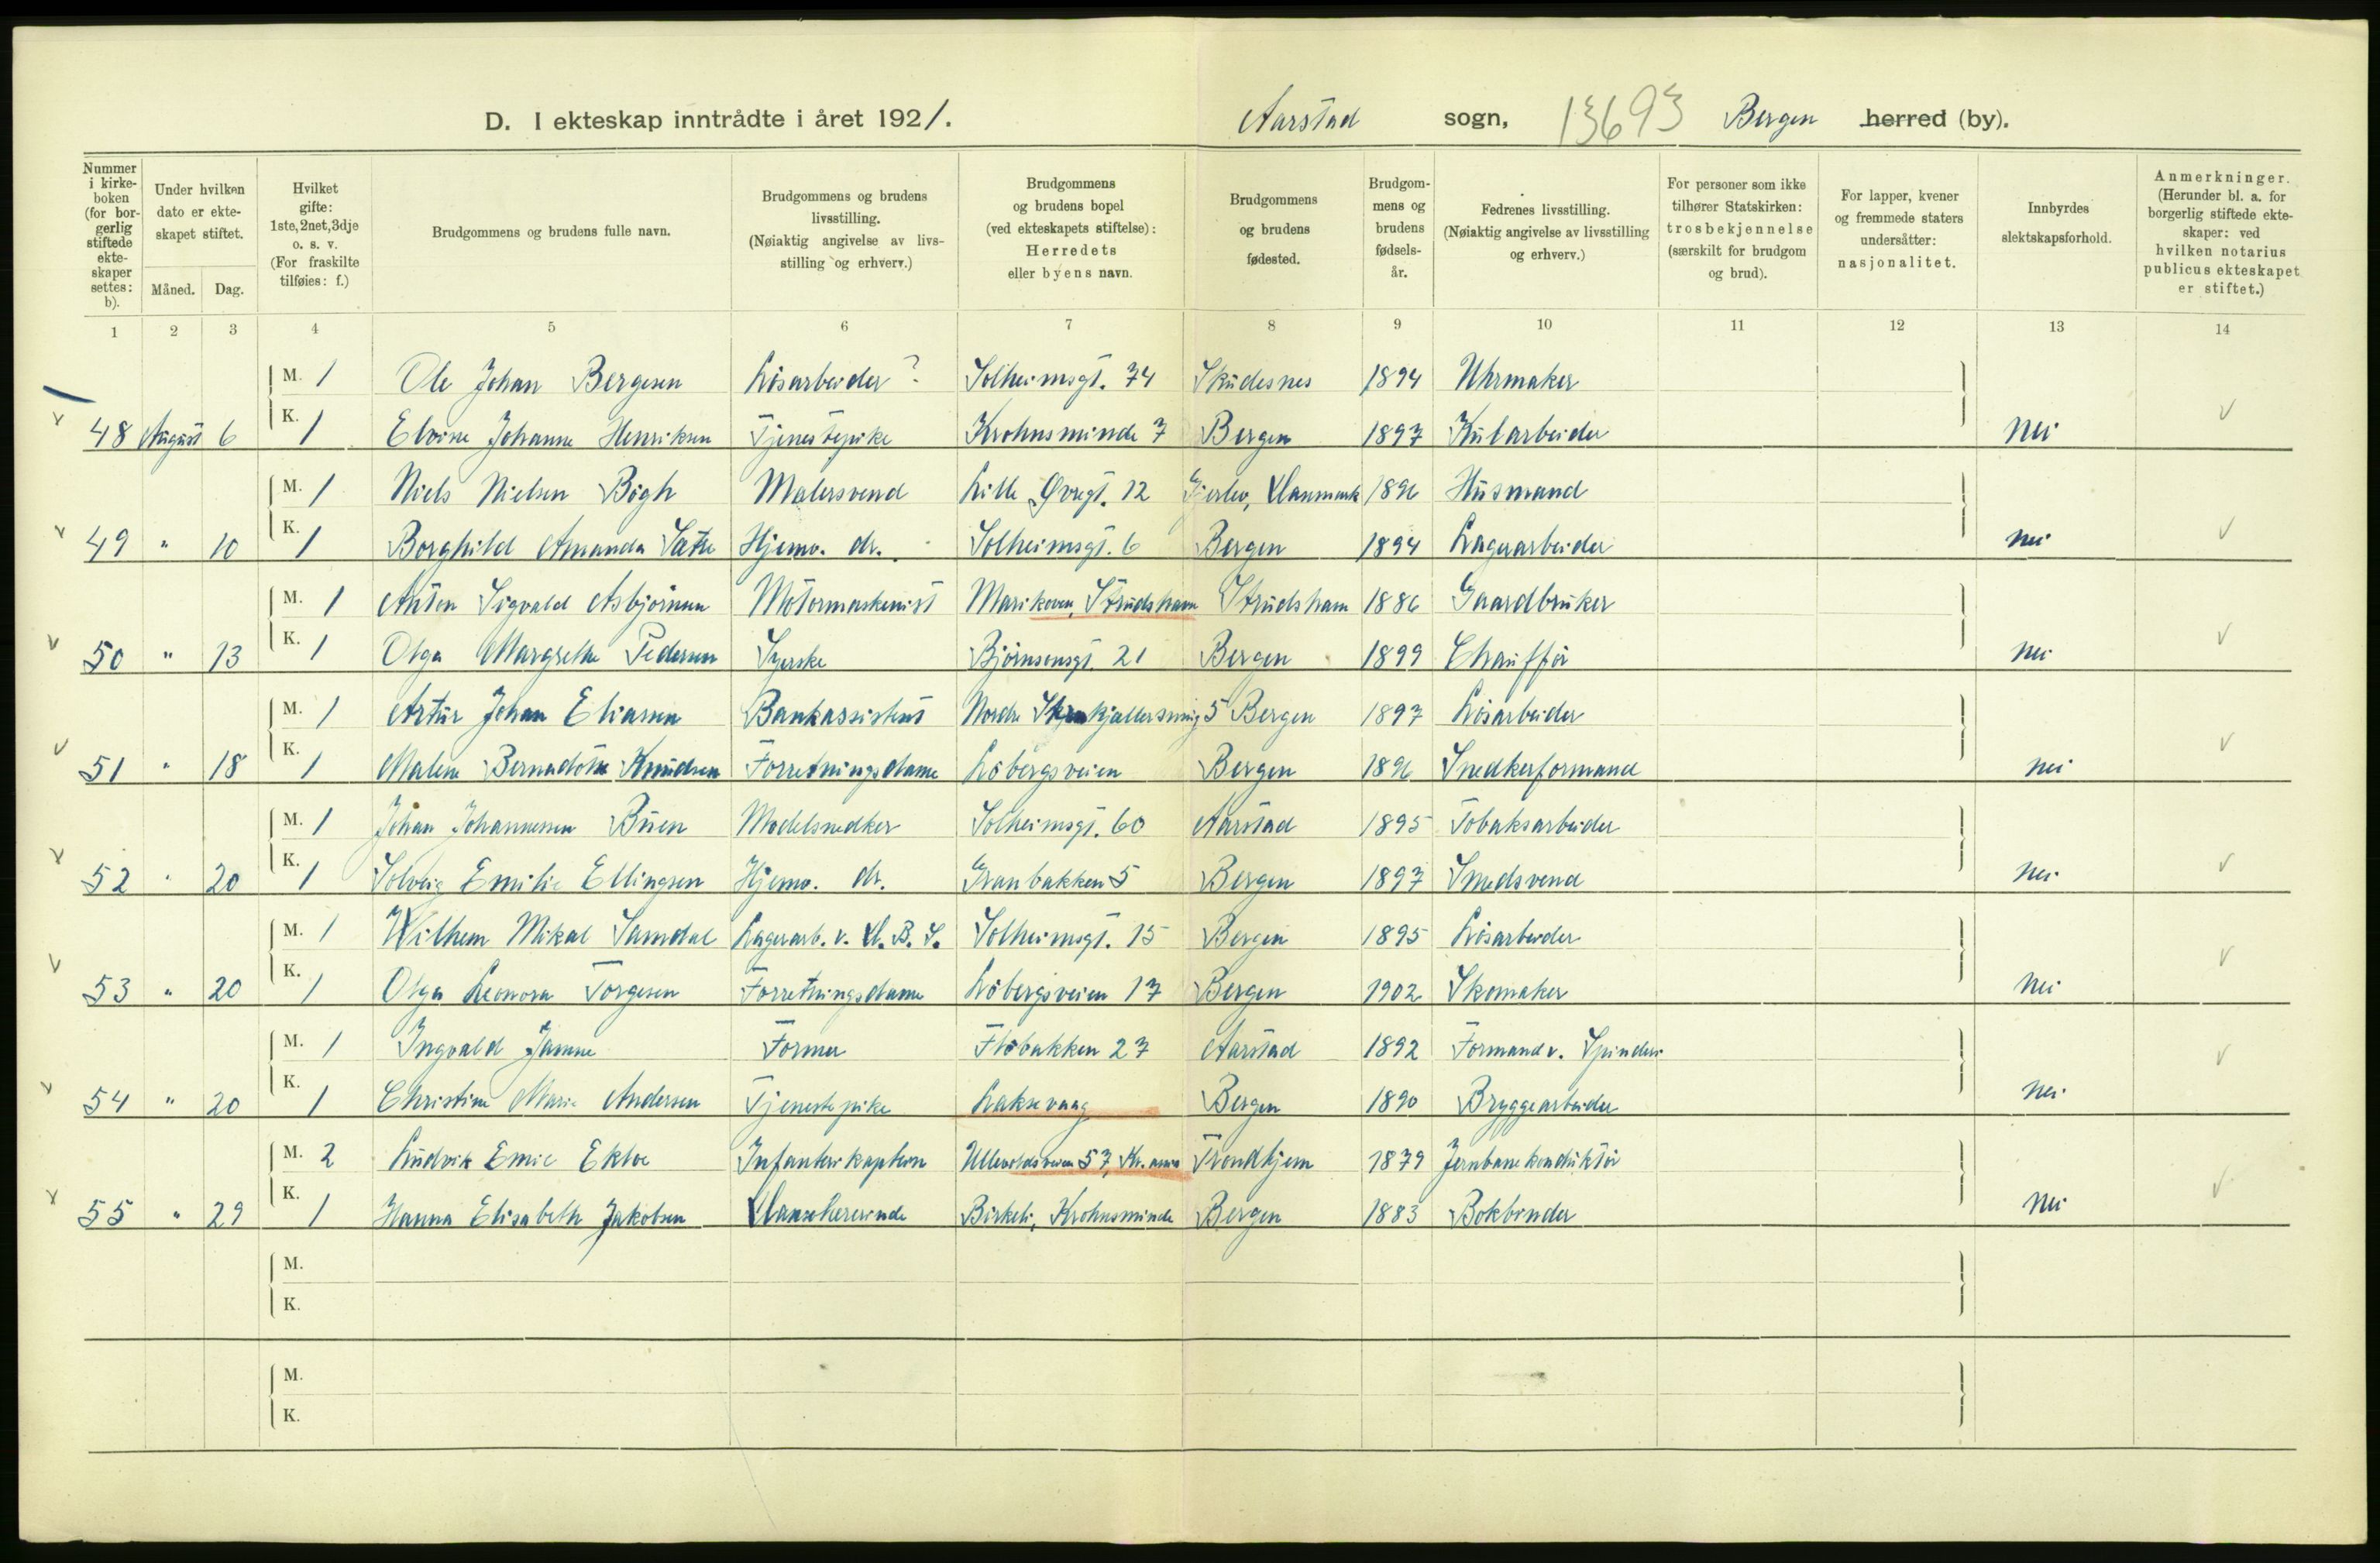 D. I ekteskap inntrådte i året 1921. Aarstad sogn, 13693 Bergen herred (by).
Nummer i kirke- boken (for bor- gerlig stiftede ekte- skaper settes: b).
Under hvilken dato er ekte- skapet stiftet.
Måned. Dag.
Hvilket gifte: 1ste, 2net, 3dje o. s. v. (For fraskilte tilføies: f.)
Brudgommens og brudens fulle navn.
Brudgommens og brudens livsstilling. (Nøiaktig angivelse av livs- stilling og erhverv.)
Brudgommens og brudens bopel (ved ekteskapets stiftelse): Herredets eller byens navn.
Brudgommens og brudens fødested.
Brudgom- mens og brudens fødsels- år.
Fedrenes livsstilling. (Nøiaktig angivelse av livsstilling og erhverv.)
For personer som ikke tilhører Statskirken: trosbekjennelse (særskilt for brudgom og brud).
For lapper, kvener og fremmede staters undersåtter: nasjonalitet.
Innbyrdes slektskapsforhold.
Anmerkninger. (Herunder bl. a. for borgerlig stiftede ekte- skaper: ved hvilken notarius publicus ekteskapet er stiftet.)
1 2 3 4 5 6 7 8 9 10 11 12 13 14
M. 1 Ole Johan Bergesen Løsarbeider ? Solheimsgt. 74 Skudesnes 1894 Uhrmaker
48 August 6 K. 1 Elvine Johanne Henriksen Tjenestepike Krohnsminde 7 Bergen 1897 Kularbeider Nei
M. 1 Niels Nielsen Bögh Malersvend Lille Øvregt. 12 Gjerlev, Danmark 1896 Husmand
49 " 10 K. 1 Borghild Amanda Sætre Hjemv. dr. Solheimsgt. 6 Bergen 1894 Lagerarbeider Nei
M. 1 Anton Sigvald Asbjörnsen Motormaskinist Marikoven, Strudshavn Strudshavn 1886 Gaardbruker
50 " 13 K. 1 Olga Margrethe Pedersen Syerske Bjørnsonsgt. 21 Bergen 1899 Chauffør Nei
M. 1 Artur Johan Eliasen Bankassistent Nordre 5 Bergen 1897 Løsarbeider
51 " 18 K. 1 Malene Bernadotte Knudsen Forretningsdame Løbergsveien Bergen 1896 Snedkerformand Nei
M. 1 Johan Johannessen Buen Modelsnedker Solheimsgt. 60 Aarstad 1895 Tobaksarbeider
52 " 20 K. 1 Solveig Emilie Ellingsen Hjemv. dr. Granbakken 5 Bergen 1897 Smedsvend Nei
M. 1 Wilhem Mikal Samdal Lagerarb. v. D. B. S. Solheimsgt. 15 Bergen 1895 Løsarbeider
53 " 20 K. 1 Olga Leonora Torgersen Forretningsdame Løbergsveien 17 Bergen 1902 Skomaker Nei
M. 1 Ingvald Jamne Former Fløbakken 27 Aarstad 1892 Formand v. Spinderi
54 " 20 K. 1 Christine Marie Andersen Tjenestepike Laksevaag Bergen 1890 Bryggearbeider Nei
M. 2 Ludvik Emil Ekloe Infanterikaptein Ullevoldsveien 57, Kr.ania Trondhjem 1879 Jernbanekonduktør
55 " 29 K. 1 Hanna Elisabeth Jakobsen Danselærerinde Birkeli, Krohnsminde Bergen 1883 Bokbinder Nei
M.
K.
M.
K.